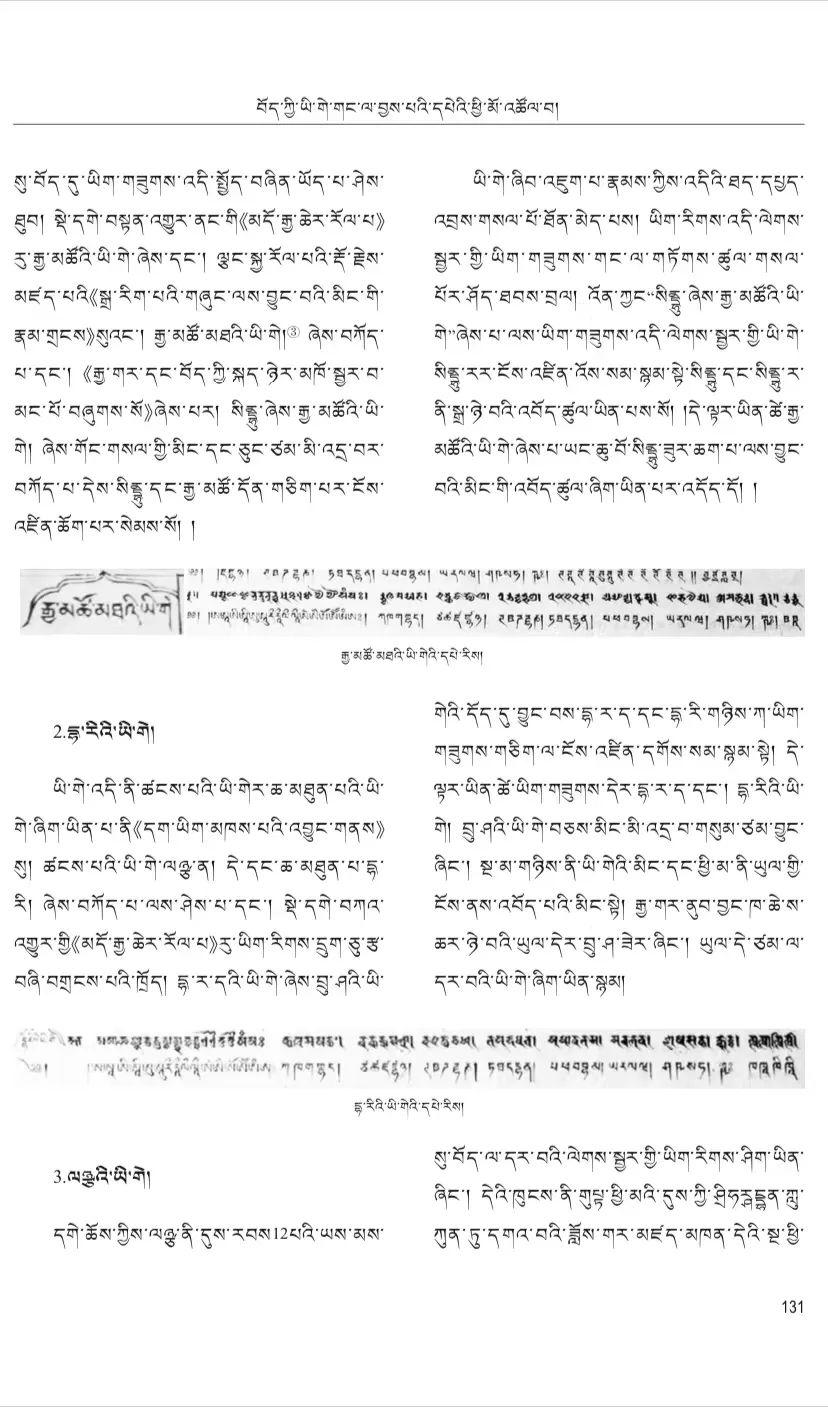 བོད་ཀྱི་ཡི་གེ་གང་ལ་བྱས་པའི་དཔེའི་ཕྱི་མོ་འཚོལ་བ།
སུ་བོད་དུ་ཡིག་གཟུགས་འདི་སྤྱོད་བཞིན་ཡོད་པ་ཤེས་
ཐུབ། སྡེ་དགེ་བསྟན་འགྱུར་ནང་གི《མདོ་རྒྱ་ཆེར་རོལ་པ》
རུ་རྒྱ་མཚོའི་ཡི་གེ་ཞེས་དང་། ལྕང་སྐྱ་རོལ་པའི་རྡོ་རྗེས་
མཛད་པའི《སྒྲ་རིག་པའི་གཞུང་ལས་བྱུང་བའི་མིང་གི་
རྣམ་གྲངས》སུའང་། རྒྱ་མཚོ་མཐའི་ཡི་གེ།③ ཞེས་བཀོད་
པ་དང་། 《རྒྱ་གར་དང་བོད་ཀྱི་སྐད་ཉེར་མཁོ་སྦྱར་བ་
མང་པོ་བཞུགས་སོ》ཞེས་པར། སིནྡྷུ་ཞེས་རྒྱ་མཚོའི་ཡི་
གེ། ཞེས་གོང་གསལ་གྱི་མིང་དང་ཅུང་ཙམ་མི་འདྲ་བར་
བཀོད་པ་དེས་སིནྡྷུ་དང་རྒྱ་མཚོ་དོན་གཅིག་པར་ངོས་
འཛིན་ཆོག་པར་སེམས་སོ། །
ཡི་གེ་ཞིབ་འཇུག་པ་རྣམས་ཀྱིས་འདིའི་ཐད་དཔྱད་
འབྲས་གསལ་པོ་ཐོན་མེད་པས། ཡིག་རིགས་འདི་ལེགས་
སྦྱར་གྱི་ཡིག་གཟུགས་གང་ལ་གཏོགས་ཚུལ་གསལ་
པོར་ཤོད་ཐབས་བྲལ། འོན་ཀྱང“སིནྡྷུ་ཞེས་རྒྱ་མཚོའི་ཡི་
གེ”ཞེས་པ་ལས་ཡིག་གཟུགས་འདི་ལེགས་སྦྱར་གྱི་ཡི་གེ་
སིནྡྷུ་རར་ངོས་འཛིན་འོས་སམ་སྙམ་སྟེ་སིནྡྷུ་དང་སིནྡྷུ་ར་
ནི་སྒྲ་ཉེ་བའི་འབོད་ཚུལ་ཡིན་པས་སོ། །དེ་ལྟར་ཡིན་ཚེ་རྒྱ་
མཚོའི་ཡི་གེ་ཞེས་པ་ཡང་ཆུ་བོ་སིནྡྷུ་ཟུར་ཆག་པ་ལས་བྱུང་
བའི་མིང་གི་འབོད་ཚུལ་ཞིག་ཡིན་པར་འདོད་དོ། །
རྒྱ་མཚོ་མཐའི་ཡི་གེ
རྒྱ་མཚོ་མཐའི་ཡི་གེའི་དཔེ་རིས།
2.དྷ་རིའི་ཡི་གེ།
ཡི་གེ་འདི་ནི་ཚངས་པའི་ཡི་གེར་ཆ་མཐུན་པའི་ཡི་
གེ་ཞིག་ཡིན་པ་ནི《དག་ཡིག་མཁས་པའི་འབྱུང་གནས》
སུ། ཚངས་པའི་ཡི་གེ་ལཉྫ་ན། དེ་དང་ཆ་མཐུན་པ་དྷ་
རི། ཞེས་བཀོད་པ་ལས་ཤེས་པ་དང་། སྡེ་དགེ་བཀའ་
འགྱུར་གྱི《མདོ་རྒྱ་ཆེར་རོལ་པ》རུ་ཡིག་རིགས་དྲུག་ཅུ་རྩ་
བཞི་བགྲངས་པའི་ཁྲོད། དྷ་ར་དའི་ཡི་གེ་ཞེས་བྲུ་ཤའི་ཡི་
གེའི་དོད་དུ་བྱུང་བས་དྷ་ར་ད་དང་དྷ་རི་གཉིས་ཀ་ཡིག་
གཟུགས་གཅིག་ལ་ངོས་འཛིན་དགོས་སམ་སྙམ་སྟེ། དེ་
ལྟར་ཡིན་ཚེ་ཡིག་གཟུགས་དེར་དྷ་ར་ད་དང་། དྷ་རིའི་ཡི་
གེ། བྲུ་ཤའི་ཡི་གེ་བཅས་མིང་མི་འདྲ་བ་གསུམ་ཙམ་བྱུང་
ཞིང་། སྔ་མ་གཉིས་ནི་ཡི་གེའི་མིང་དང་ཕྱི་མ་ནི་ཡུལ་གྱི་
ངོས་ནས་འབོད་པའི་མིང་སྟེ། རྒྱ་གར་ནུབ་བྱང་ཁ་ཆེ་ས་
ཆར་ཉེ་བའི་ཡུལ་དེར་བྲུ་ཤ་ཟེར་ཞིང་། ཡུལ་དེ་ཙམ་ལ་
དར་བའི་ཡི་གེ་ཞིག་ཡིན་སྙམ།
དྷ་རིའི་ཡི་གེའི་དཔེ་རིས།
3.ལཉྫའི་ཡི་གེ།
དགེ་ཆོས་ཀྱིས་ལཉྫ་ནི་དུས་རབས12པའི་ཡས་མས་
སུ་བོད་ལ་དར་བའི་ལེགས་སྦྱར་གྱི་ཡིག་རིགས་ཤིག་ཡིན་
ཞིང་། དེའི་ཁུངས་ནི་གུཔྟ་ཕྱི་མའི་དུས་ཀྱི་
ཀུན་ཏུ་དགའ་བའི་ཟློས་གར་མཛད་མཁན་དེའི་སྔ་ཕྱི་
131